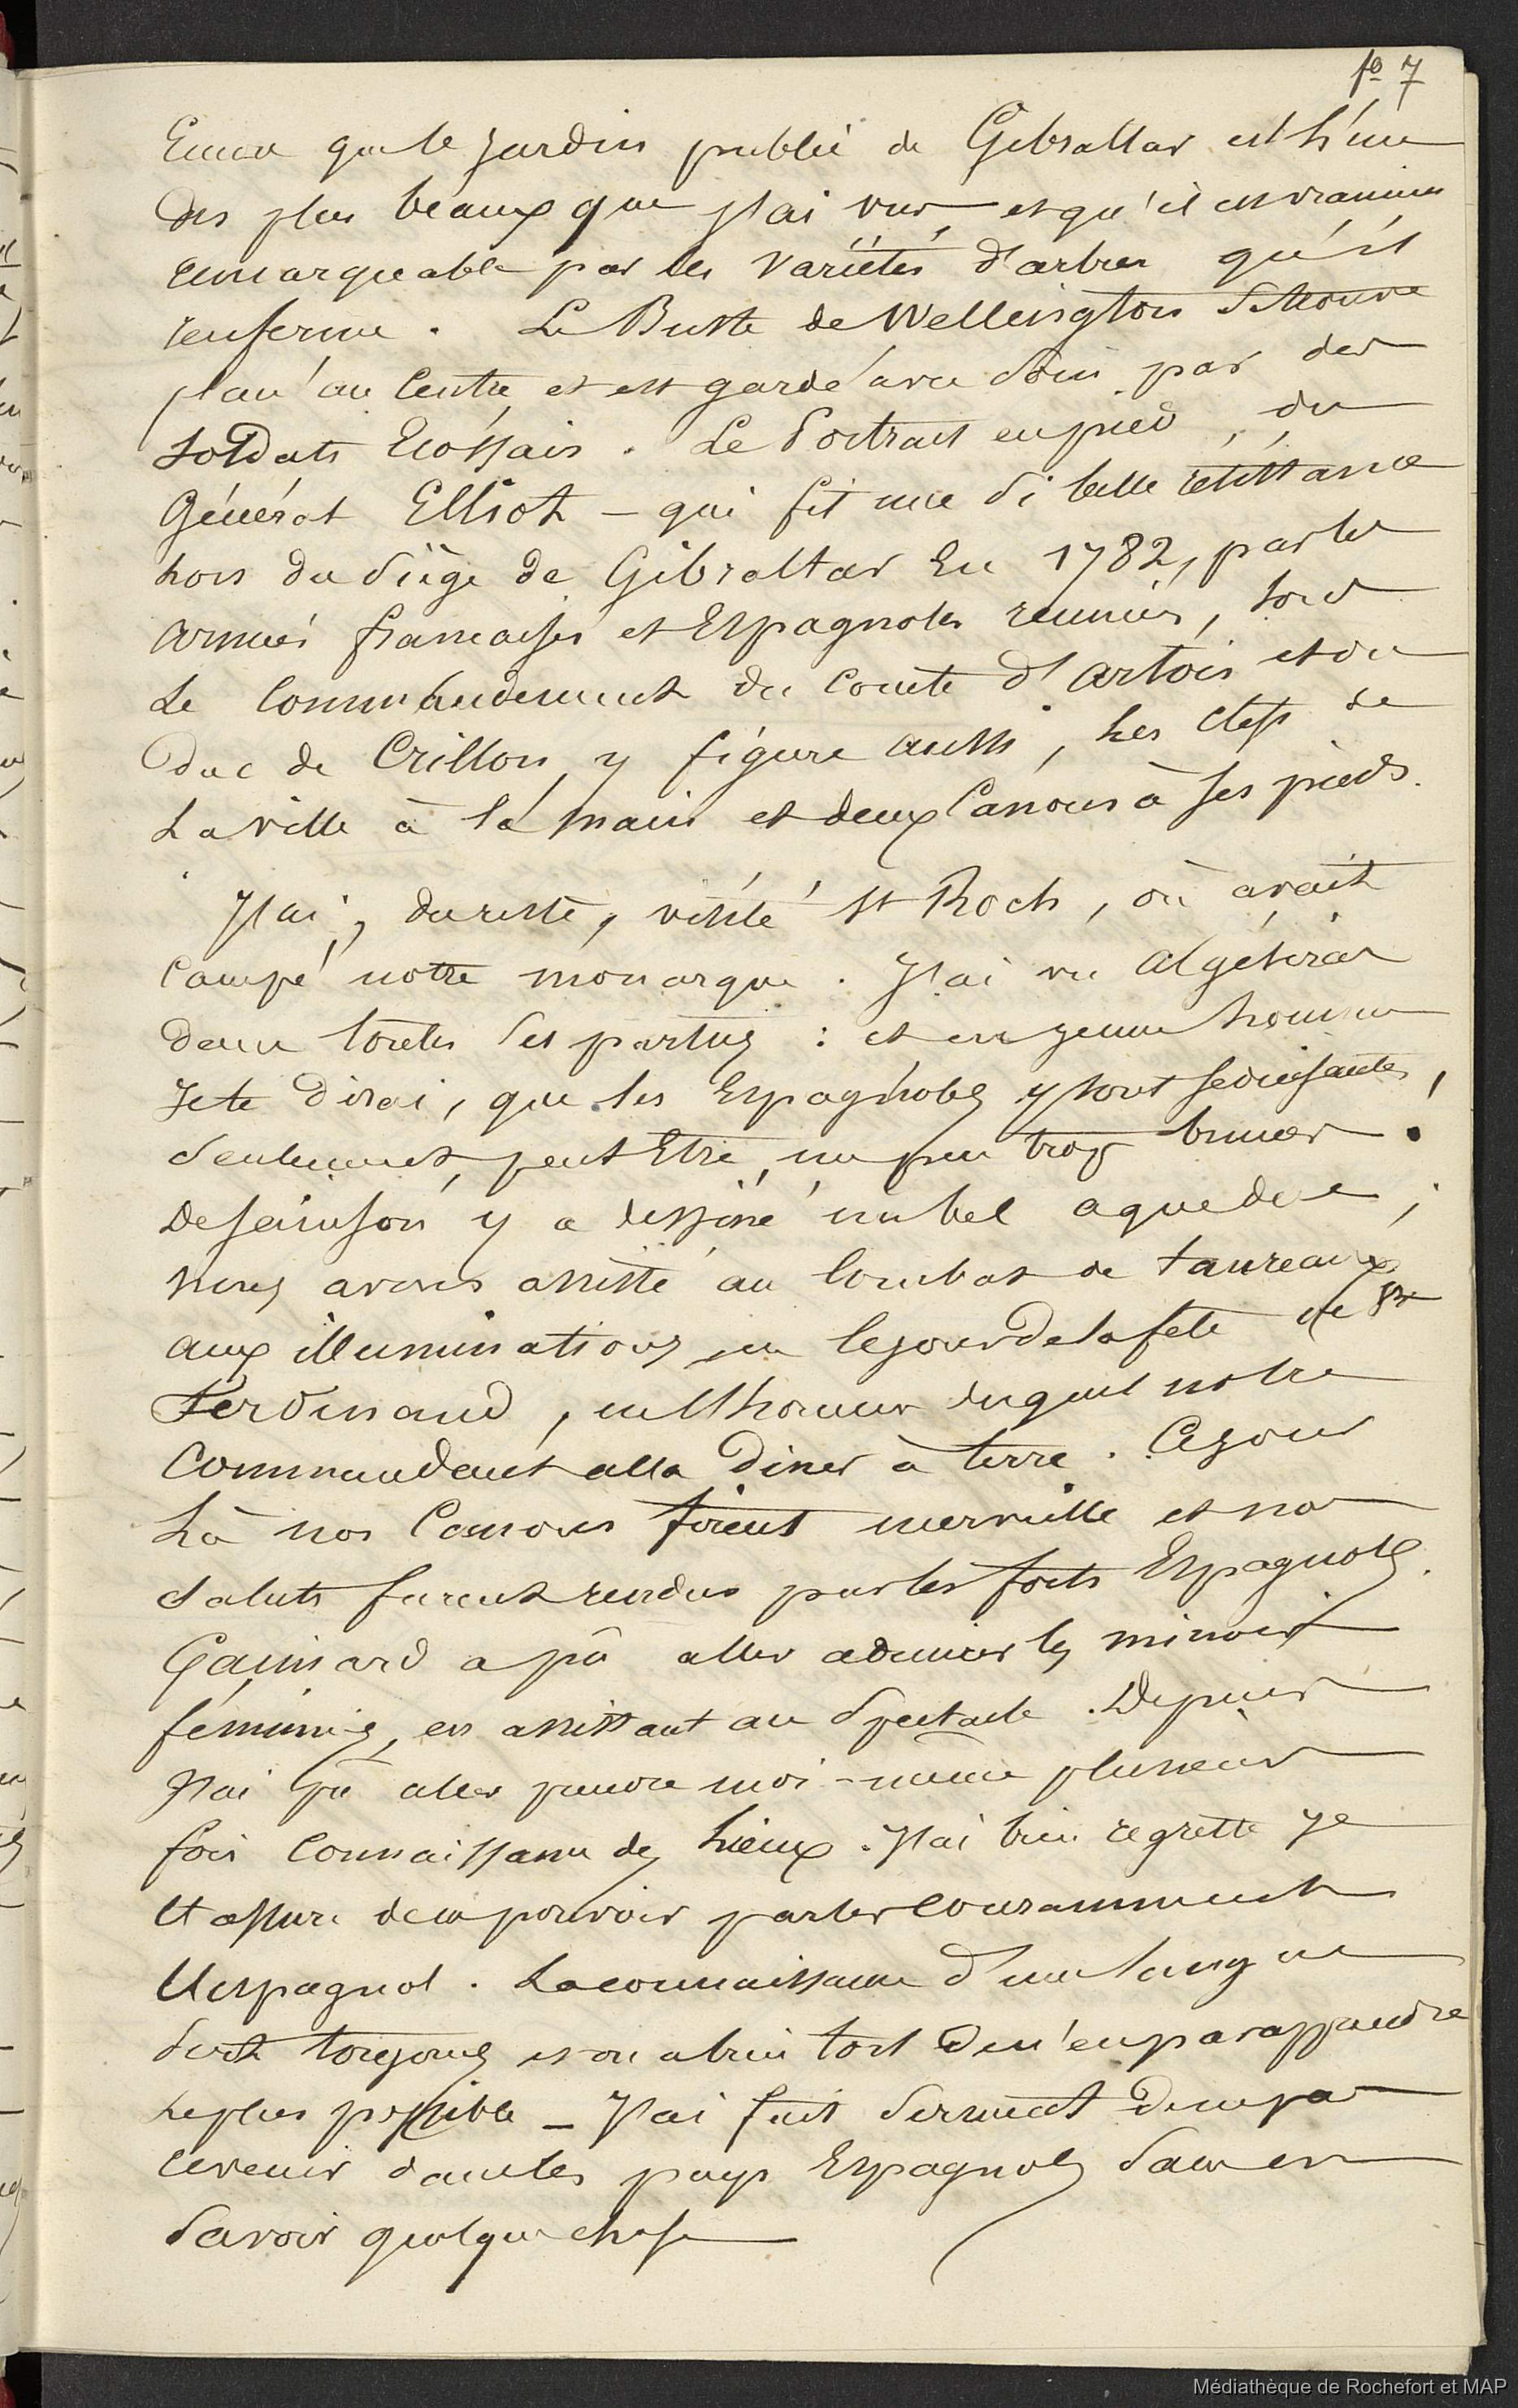 fo 7
que le jardin public de Gibraltar est l'un
des plus beaux que j'ai vus, et qu'il est vraiment
remarquable par les variétés d'arbres qu'il
renferme. Le Buste de Wellington s'trouve
placé au Centre et est gardé avec soin par des
Soldats Ecossais. Le Portrait en pied, du
Général Elliot - qui fit une si belle résistance
lors du siège de Gibraltar En 1782, par les
armées françaises et Espagnoles réunies, sous
Le Commandement du Comte d'artois et du
Duc de Crillon, y figure aussi, les clefs de
La ville à la main et deux Canons à ses pieds.
J'ai, du reste, visité St Roch, où avait
Campé notre monarque. J'ai vu algésiras
dans toutes ses parties : et en jeune homme
Je te dirai, que les Espagnoles y sont séduisantes,
seulement, peut Etre, un peu trop brunes.
De sainson y a dessiné un bel aqueduc ;
nous avons assisté au Combat de taureaux
aux illuminations, le jour de la fête de St
Ferdinand, en l'honneur duquel notre
Commandant alla Diner à terre. Ce jour
Là nos Canons firent merveille et nos
saluts furent rendus par les forts Espagnols.
Gaimard a pû aller admirer les minois
féminins, en assistant au Spectacle. Depuis
J'ai pû aller prendre moi-même plusieurs
fois Connaissance des lieux. J'ai bien regretté je
t'assure de ne pouvoir parler couramment
l'Espagnol. La connaissance d'une langue
sert toujours et on a bien tort de n'en pas apprendre
le plus possible _ J'ai fait serment de ne pas
revenir dans les pays Espagnols sans en
savoir quelque chose
Médiathèque de Rochefort et MAP